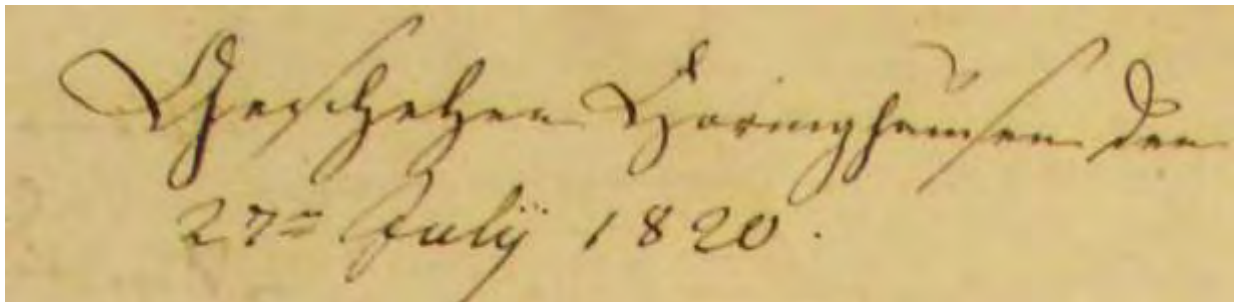 Geschehen Höringhausen den
27ⁿ Julÿ 1820.